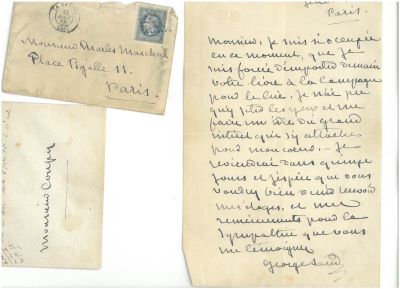 Monsieur Charles Marchal
Place Pigalle 11.
Paris.
Monsieur Coupy
Paris.
Monsieur, je suis si occupée
en ce moment, que je
suis forcée d'emporter demain
votre livre à la campagne
pour le lire. Je n'ai pu
qu'y jeter les yeux et me
faire une idée du grand
intérêt qui s'y attache
pour mon coeur. Je
reviendrai dans quinze
jours et j'espère que vous
voudrez bien venir recevoir
mes éloges, et mes
remerciements pour la
sympathie que vous
me témoignez
George Sand